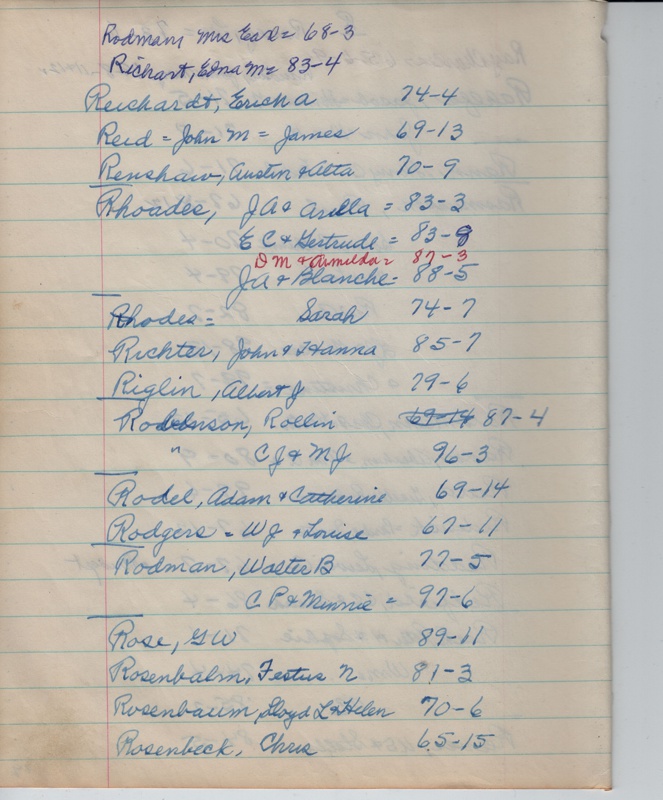 Rodman, Mrs Earl = 68-3
Richart, Edna M = 83-4
Reichardt, Erich a 74-4
Reid = John M = James 69-13
Renshaw, Austin & Alta 70-9
Rhoades, JA & Arilla = 83-3
E C & Gertrude = 83-8
D M & Armilda = 87-3
JA & Blanche = 88-5
Rhodes = Sarah 74-7
Richter, John & Hanna 85-7
Riglin, Albert J 79-6
Rollin 69-14 87-4
" C J & M J 96-3
Rodel, Adam & Catherine 69-14
Rodgers = W J & Louise 67-11
Rodman, Walter B 77-5
C P & Minnie = 97-6
Rose, G W 89-11
Rosenbalm, Festus N 81-3
Rosenbaum, Lloyd L & Helen 70-6
Rosenbeck, Chris 65-15